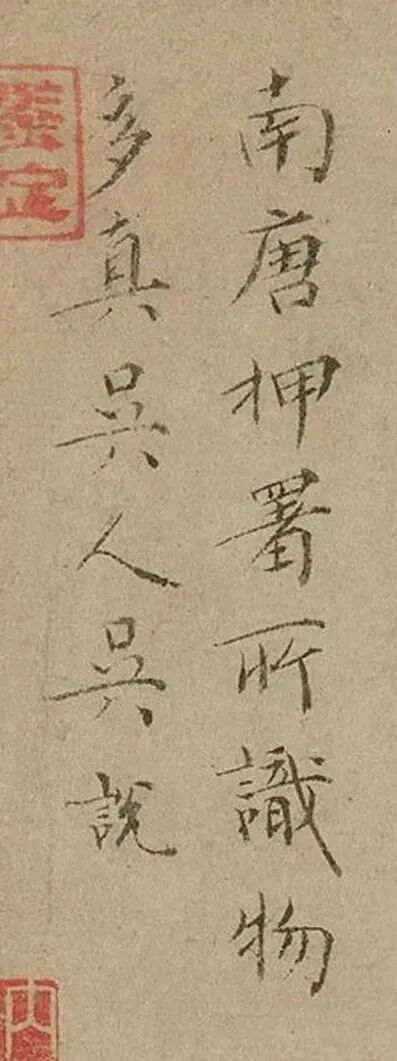 南唐押署所識物
多真吳人吳說
鑒定